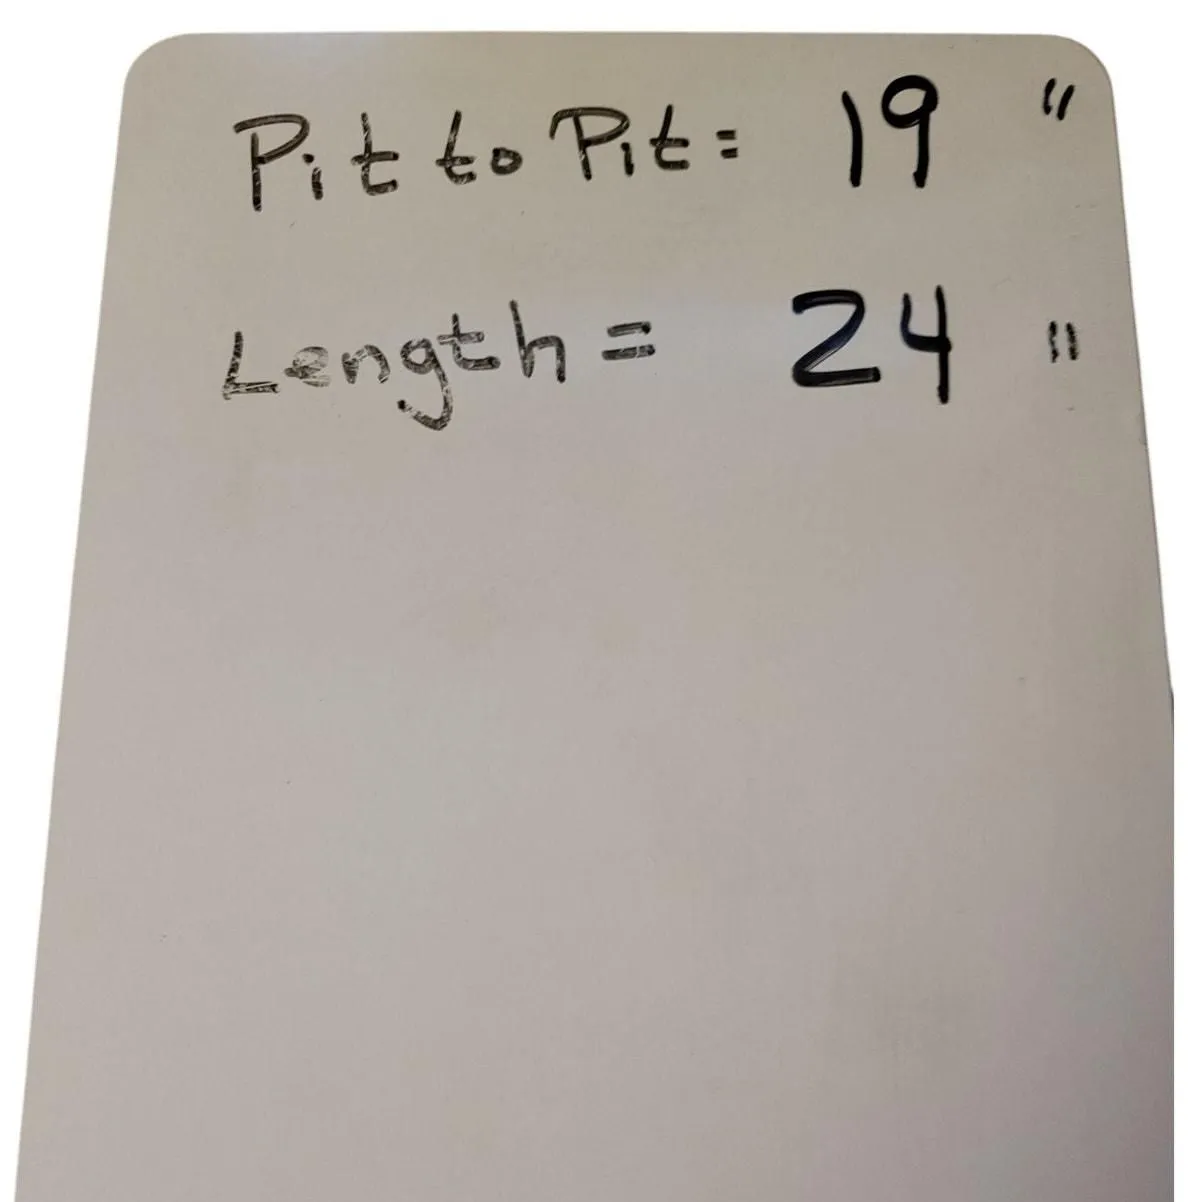 Pit to Pit= 19 "
Length = 24 "